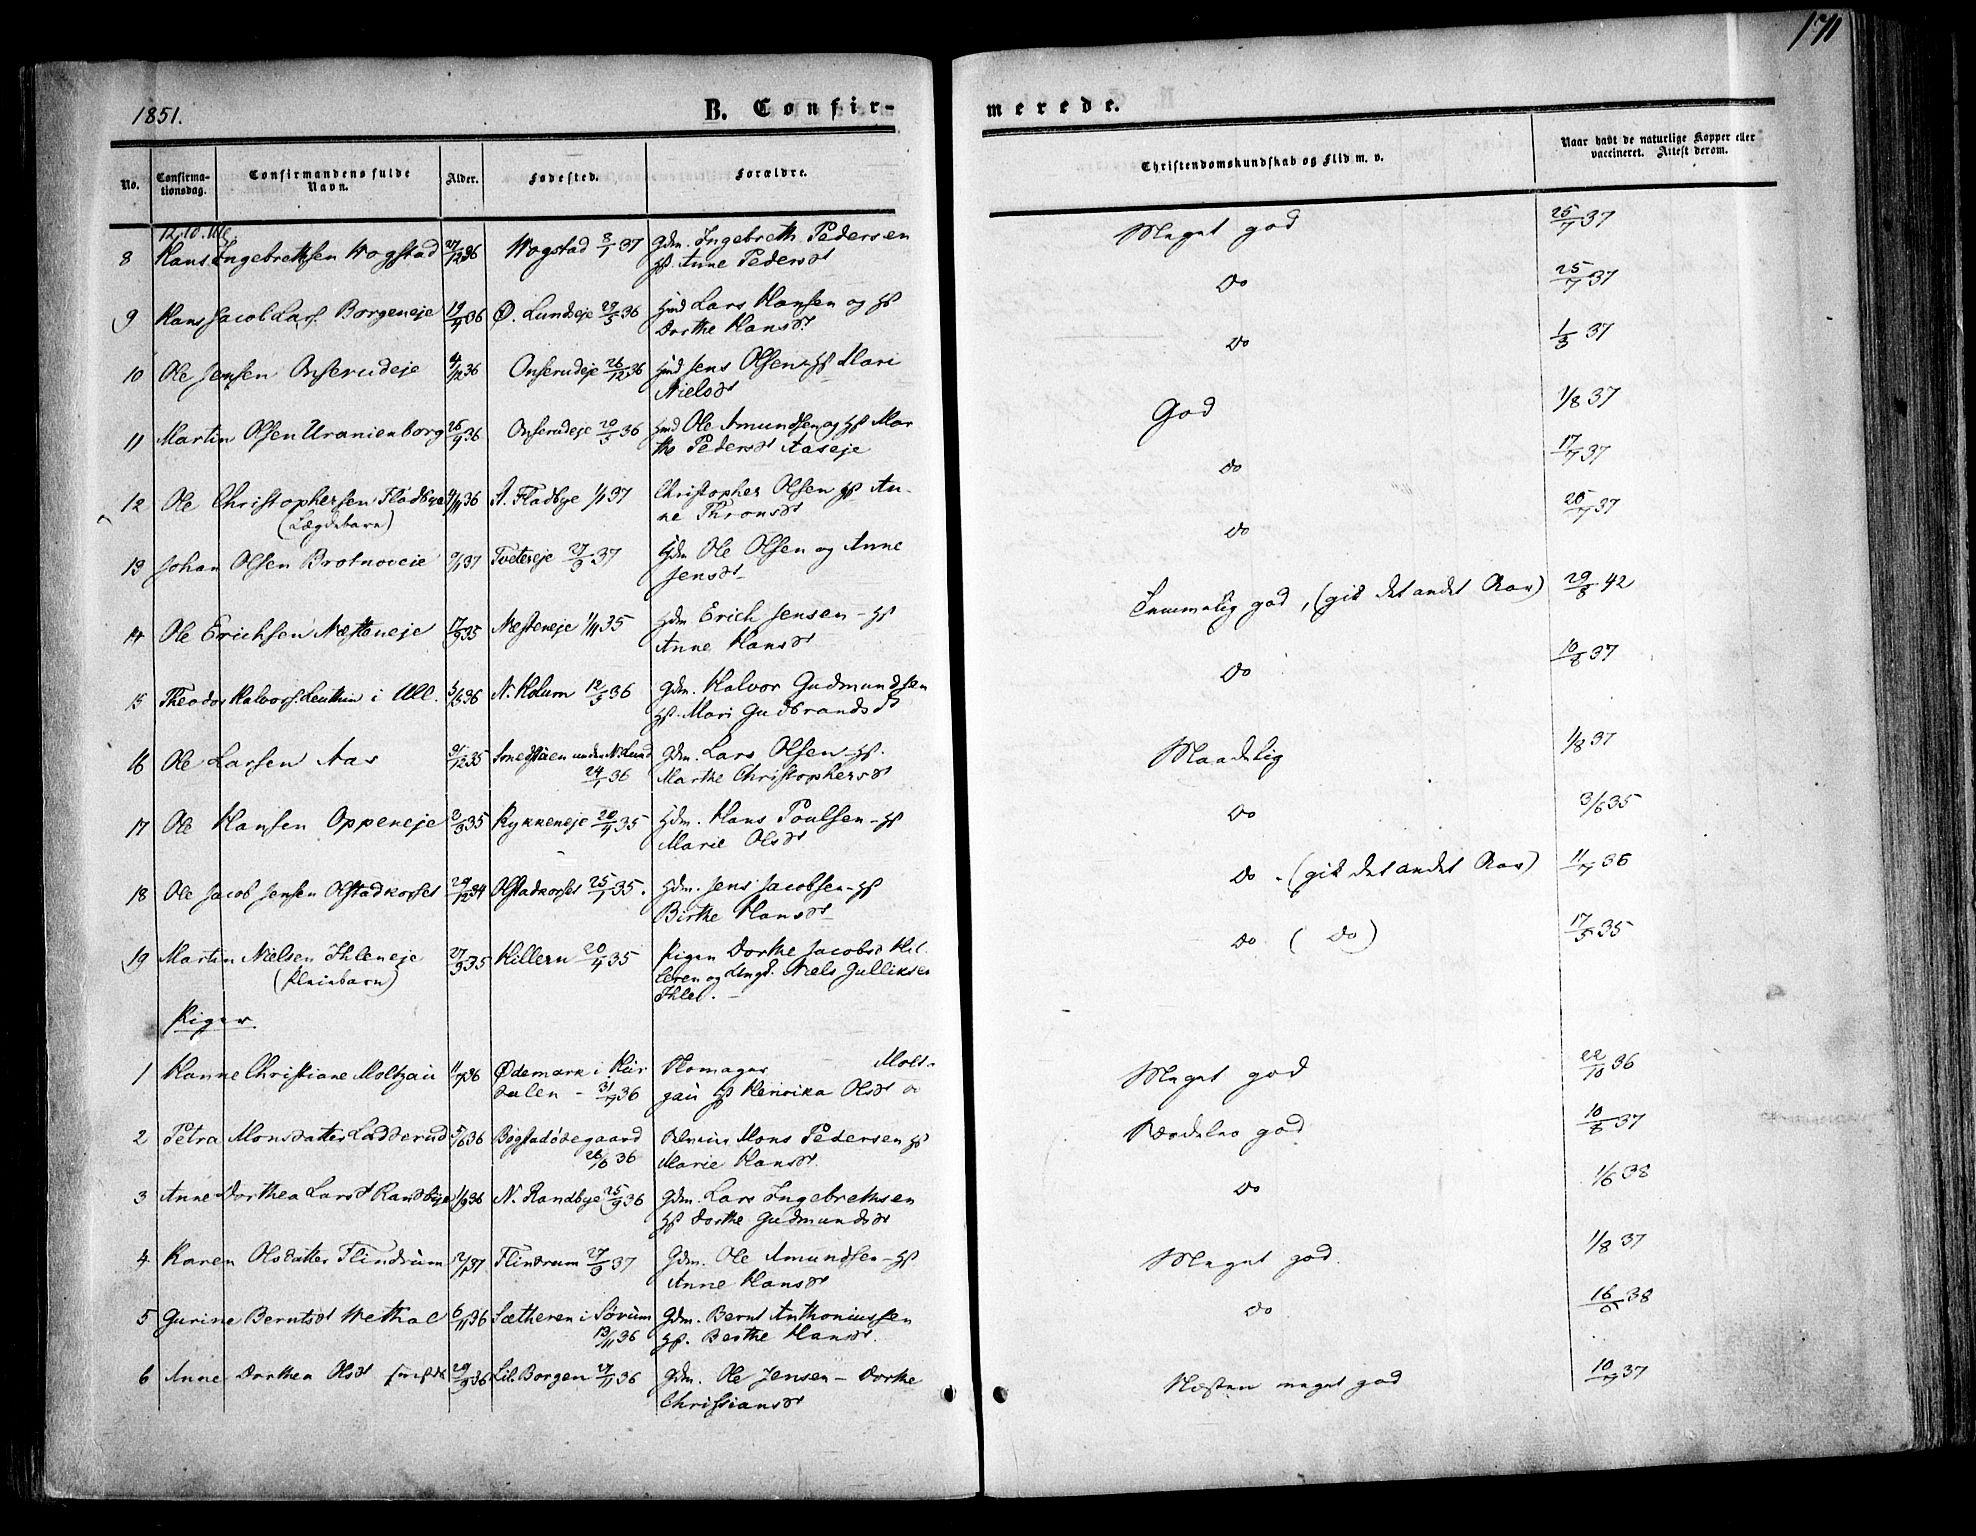 171
1851.
B. Confir-
merede.
No.
Confirma-
tionsdag.
Confirmandens fulde
Navn.
Alder.
Fødested.
Forældre.
Christendomskundskab og Flid m. v.
Naar havt de naturlige Kopper eller
vaccineret. Attest derom.
12. 10.
8 Hans Ingebrethsen Wogstad 27/12 36 Wogstad 8/1 37 Gdm. Ingebreth Pedersen
Anne Pedersdt
Meget god 25/7 37
9 Hans Jacob Lars. Borgeneje 19/4 36 Ø. Lundeje 29/5 36 Hmd Lars Hansen og
Dorthe Hansdt
Do 25/7 37
10 Ole Jensen Onserudeje 4/12 36 Onserudeje 26/12 36 Hmd Jens Olsen Mari
Nielsdt
Do 1/3 37
11 Martin Olsen Uranienborg 26/4 36 Onserudeje 20/5 36 Hmd Ole Amundsen og Mar
the Pedersdt Aaseje
God 1/8 37
12 Ole Christophersen Fladbye 36 Fladbye 37 Christopher Olsen An-
ne Thronsdt
(Lægdebarn)
Do 17/7 37
13 Johan Olsen Brotnoveie 37 Tvetereje 27/3 37 Hdm Ole Olsen og Anne
Jensdt
Do 37
14 Ole Erichsen Næsteneje 17/9 35 Næsteneje 35 Hdm Erich Jensen -
Anne Hansdt
Temmelig god, (gik det andet Aar) 29/8 42
15 Theodor Halvors. i Ull. 36 N. Holum 12/5 36 Gdm. Halvor Gudmundsen
Mari Gudbrandsdt
Do 10/8 37
16 Ole Larsen Aas 31/12 35 Smedstuen under N. Lund
24/1 36
Gdm. Lars Olsen -
Marthe Christophersdt
Maadelig 1/8 37
17 Ole Hansen Oppeneje 35 Rykkeneje 20/4 35 Hdm. Hans Poulsen -
Marie Olsdt
Do 3/6 35
18 Ole Jacob Jensen Olstadkorset 29/12 34 Olstadkorset 25/1 35. Hdm. Jens Jacobsen -
Birthe Hansdt
Do. (gik det andet Aar) 11/7 36
19 Martin Nielsen Ihleneje 27/3 35 Killern 20/4 35 Pigen Dorthe Jacobsd Kil-
leren og Ungk. Niels Gulliksen
Ihlel. -
Do ( Do ) 17/5 35
Piger.
1 Hanne Christiane Moltzau 11/7 36 Ødemark i Hur
dalen - 31/7 36
Molt-
zau Henrika Olsdt
Meget god 22/10 36
2 Petra Monsdatter Ladderud 5/6 36 Bogstadødegaard
26/6 36
Mons Pedersen
Marie Hansdt.
Særdeles god 10/8 37
3 Anne Dorthea Larsdt Randbye 1/9 36 N. Randbye 25/9 36 Gdm. Lars Ingebrethsen
Dorthe Gudmundsdt
Do 1/6 38
4 Karen Olsdatter Flindrum 37 Flindrum 27/3 37 Gdm. Ole Amundsen -
Anne Hansdt
Meget god. 1/8 37
5 Gurine Berntsdt Wethal 6/11 36 Sætheren i Sørum
13/11 36
Gdm. Bernt Anthoniussen
Berthe Hansdt.
Do 38
6 Anne Dorthea Olsdt 29/9 36 Lil. Borgen 27/11 36 Gdm. Ole Jensen - Dorthe
Christiansdt
Næsten meget god 10/7 37